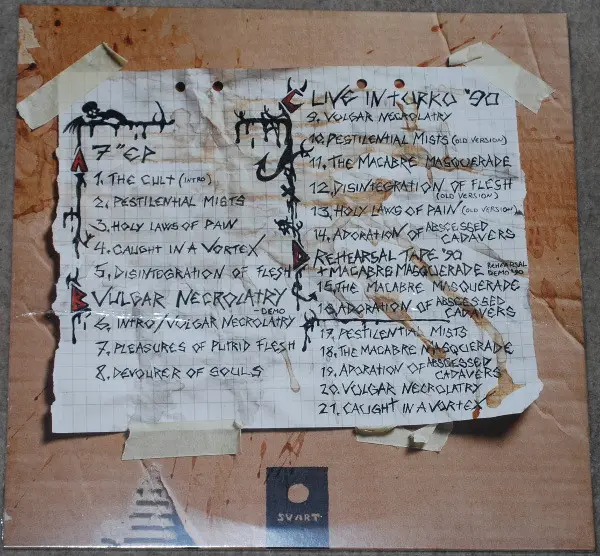 A
7" EP
1. THE CULT (INTRO)
2. PESTILENTIAL MISTS
3. HOLY LAWS OF PAIN
4. CAUGHT IN A VORTEX
5. DISINTOGRATION OF FLESH
B
VULGAR NECROLATRY -DEMO
6. INTRO/VULGAR NECROLATRY
7. PLEASURES OF PUTRID FLESH
8. DEVOURER OF SOULS
C LIVE IN TURKU '90
9. VULGAR NECROLATRY
10. PESTILENTIAL MISTS (OLD VERSION)
11. THE MACABRE MASQUERADE
12. DISINTEGRATION OF FLESH
(OLD VERSION)
13. HOLY LAWS OF PAIN (OLD VERSION)
14. ADORATION OF ABSCESSED
CADAVERS
D
REHEARSAL TAPE '90
+ MACABRE MASQUERADE REHEARSAL DEMO '90
15. THE MACABRE MASQUERADE
16. ADORATION OF ABSCESSED
CADAVERS
17. PESTILENTIAL MISTS
18. THE MACABRE MASQUERADE
19. ADORATION OF ABSCESSED
CADAVERS
20. VULGAR NECROLATRY
21. CAUGHT IN A VORTEX
SVART